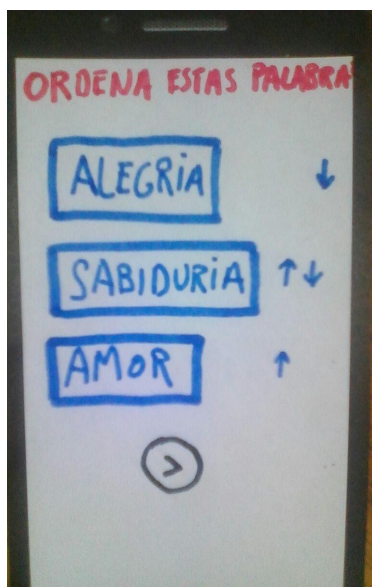 ORDENA ESTAS PALABRA
ALEGRiA ↓
SABIDURiA ↑↓
AMOR ↑
>